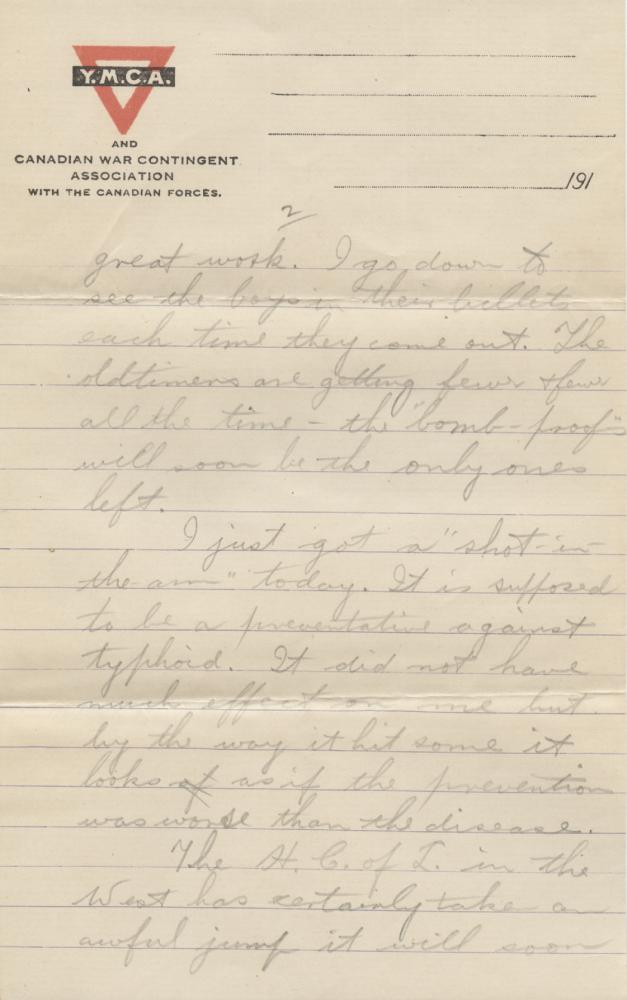 Y.M.C.A.
AND
CANADIAN WAR CONTINGENT
ASSOCIATION
WITH THE CANADIAN FORCES.
191
2
great work. I go down to
see the boys in their billets
each time they come out. The
oldtimers are getting fewer & fewer
all the time - the "bomb-proofs"
will soon be the only ones
left.
I just got a "shot-in-
the-arm" today. It is supposed
to be a preventative against
typhoid. It did not have
much effect on me but
by the way it hit some it
looks as if the prevention
was worse than the disease.
The H. C. of L. in the
West has certainly take an
awful jump it will soon